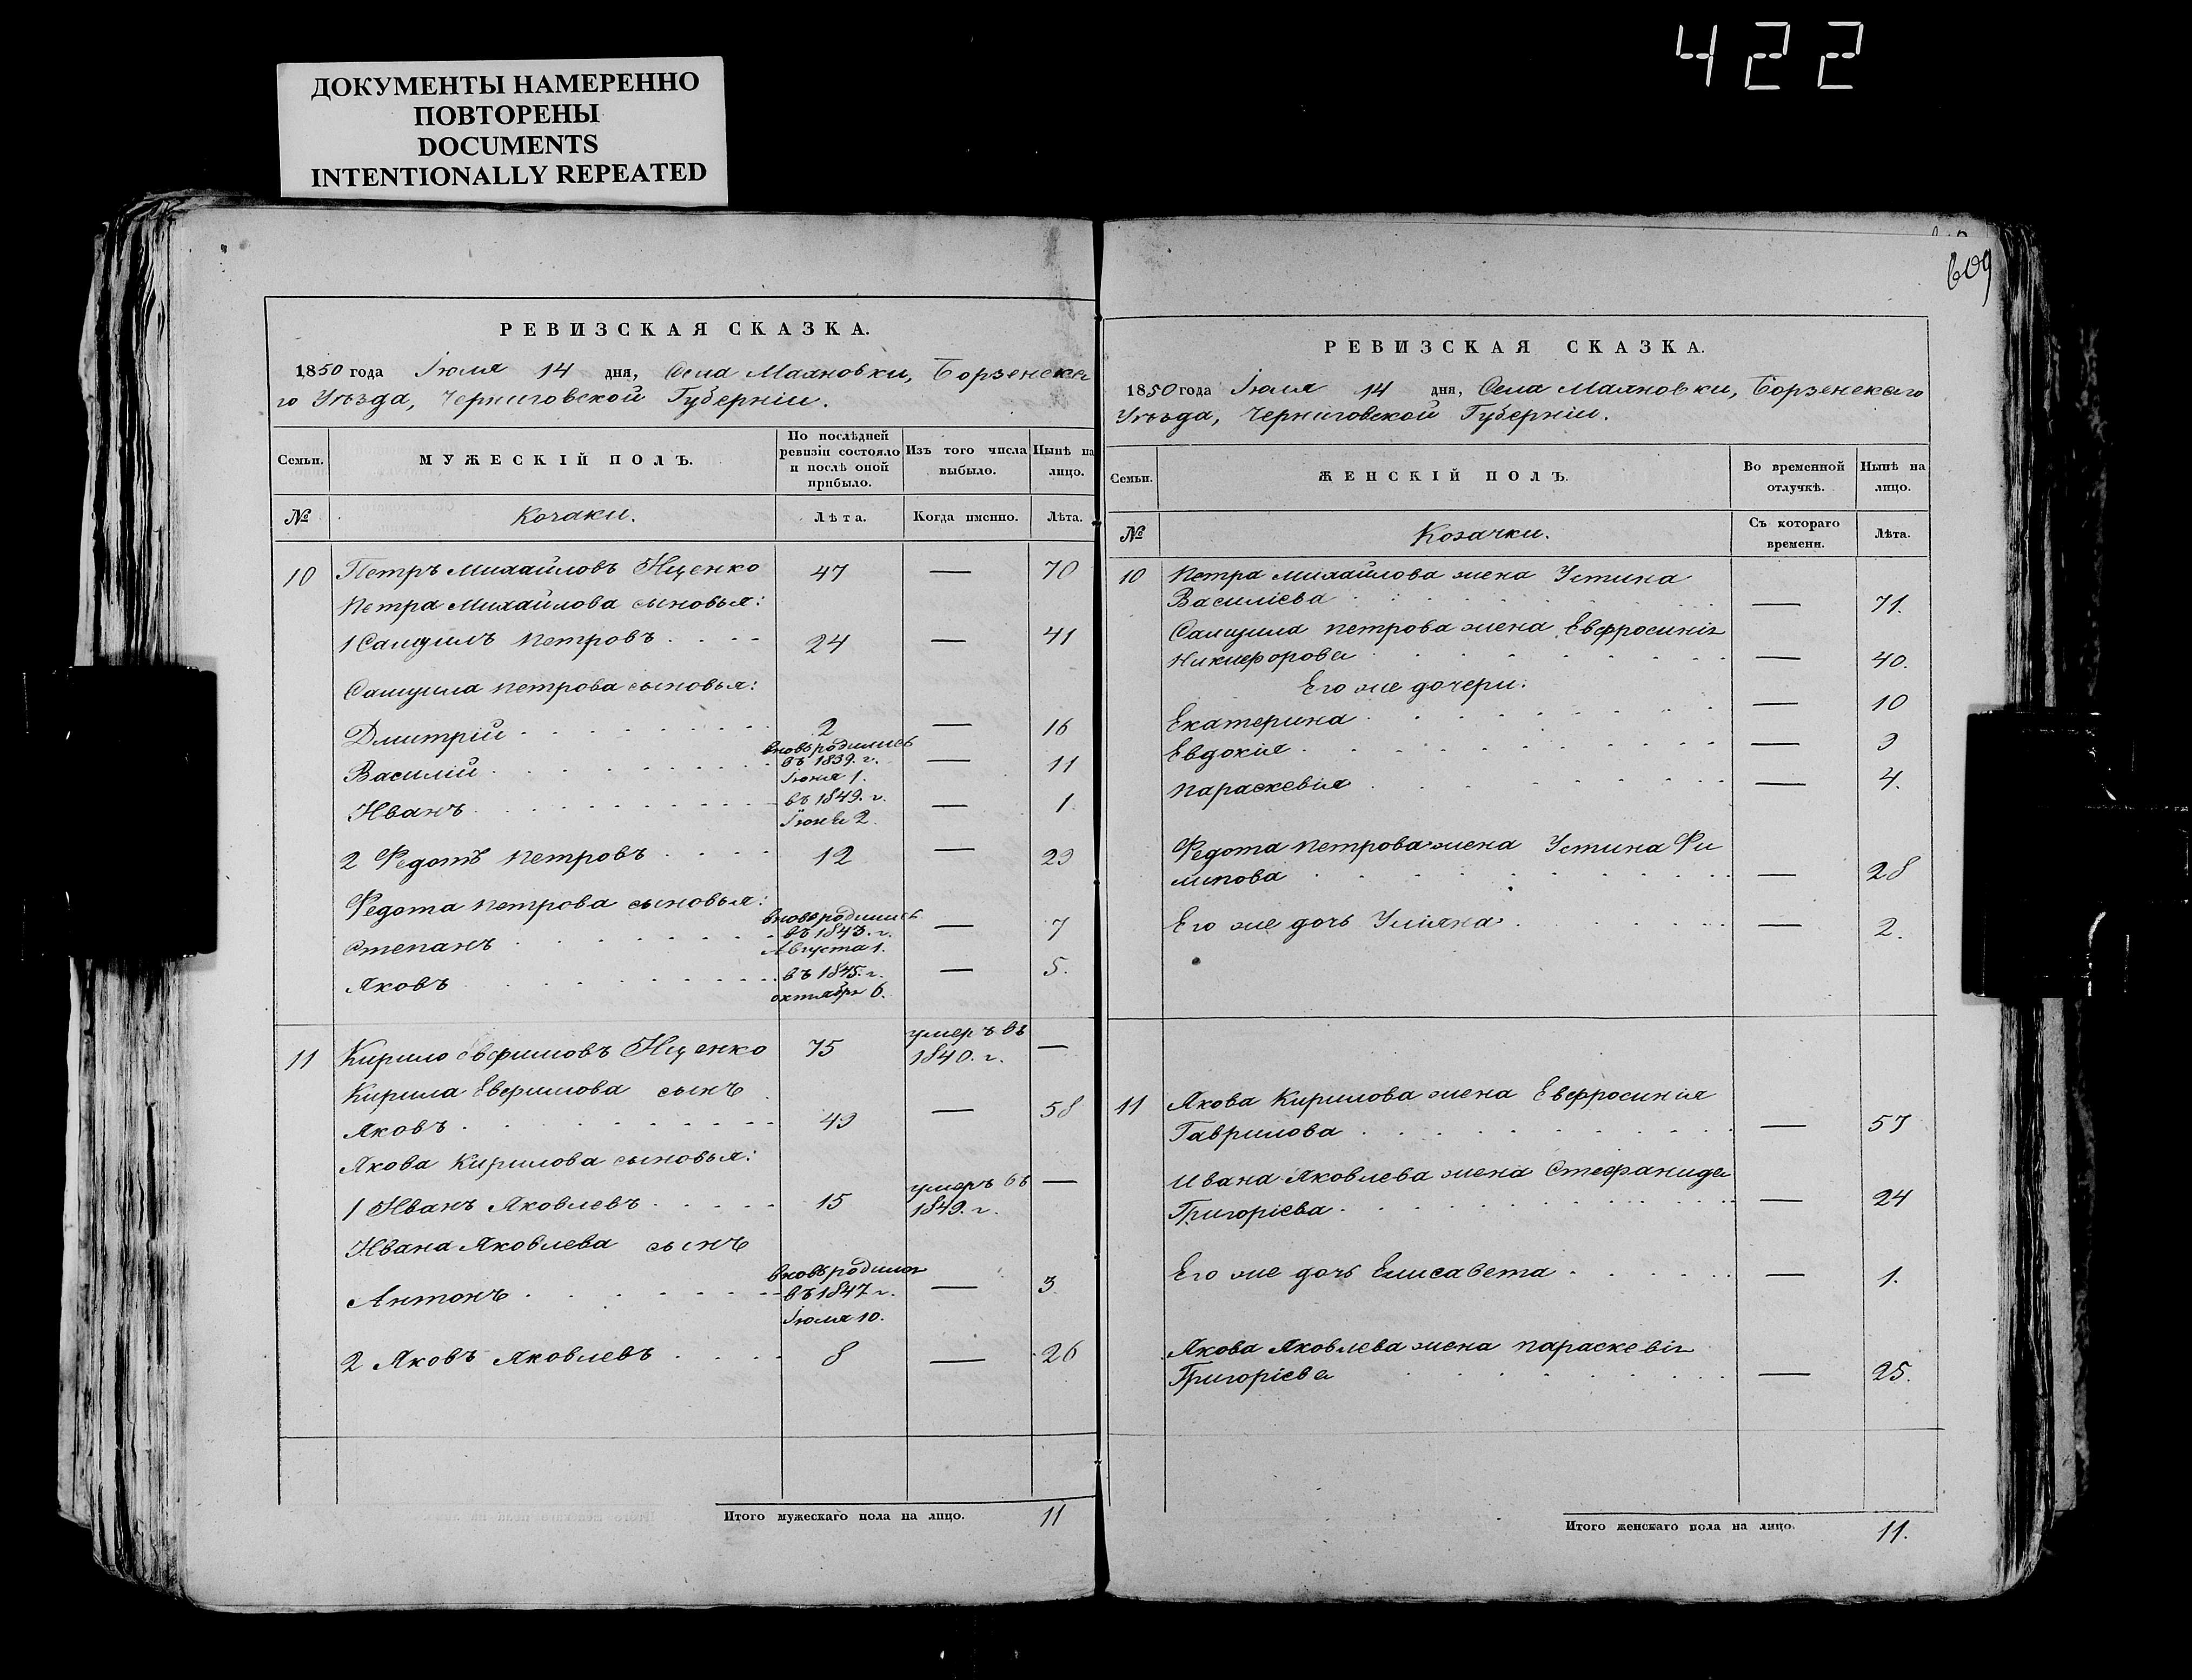 422
ДОКУМЕНТЫ НАМЕРЕННО
ПОВТОРЕНЫ
DOCUMENTS
INTENTIONALLY REPEATED
609
РЕВИЗСКАЯ СКАЗКА.
1850 года Іюля 14 дня, Села Маяновки, Борзенска
го Уѣзда, Черниговской Губерніи.
Семьи.
МУЖЕСКІЙ ПОЛЪ.
По послѣдней
ревизіи состояло
и послѣ оной
прибыло.
Изъ того числа
выбыло.
Нынѣ на
лицо.
№
Козаки.
Лѣта.
Когда именно.
Лѣта.
10 Петръ Михайловъ Ищенко 47 — 70
Петра Михайлова сыновья:
1 Самуилъ Петровъ 24 — 41
Самуила Петрова сыновья:
Дмитрій 2 — 16
вновь родились
Василій въ 1839. г. — 11
Іюня 1.
Иванъ въ 1849. г. — 1
Іюня 2.
2 Федотъ Петровъ 12 — 29
Федота Петрова сыновья:
вновь родились
Степанъ въ 1843. г. — 7
Августа 1.
Яковъ въ 1845. г. — 5.
октября 6.
11 Кирило Евфимовъ Ищенко 75 умеръ въ 1840. г. —
Кирила Евфимова сынъ
Яковъ 49 — 58
Якова Кирилова сыновья:
1 Иванъ Яковлевъ 15 умеръ въ 1849. г. —
Ивана Яковлева сынъ
вновь родился
Антонъ въ 1847 г. — 3
Іюля 10.
2 Яковъ Яковлевъ 8 — 26
Итого мужескаго пола на лицо. 11
РЕВИЗСКАЯ СКАЗКА.
1850 года Іюля 14 дня, Села Маяновки, Борзенскаго
Уѣзда, Черниговской Губерніи.
Семьи.
ЖЕНСКІЙ ПОЛЪ.
Во временной
отлучкѣ.
Нынѣ на
лицо.
№
Козачки.
Съ котораго
времени.
Лѣта.
10 Петра Михайлова жена Устина
Василіева — 71.
Самуила Петрова жена Евфросинія
Никифорова — 40.
Его же дочери:
Екатерина — 10
Евдокия — 9
Параскевія — 4.
Федота Петрова жена Устина Фи
липова — 28
Его же дочь Уліяна — 2.
11 Якова Кирилова жена Евфросинія
Гаврилова — 57
Ивана Яковлева жена Стефанида
Григоріева — 24
Его же дочь Елисавета — 1.
Якова Яковлева жена Параскевія
Григоріева — 25.
Итого женскаго пола на лицо. 11.